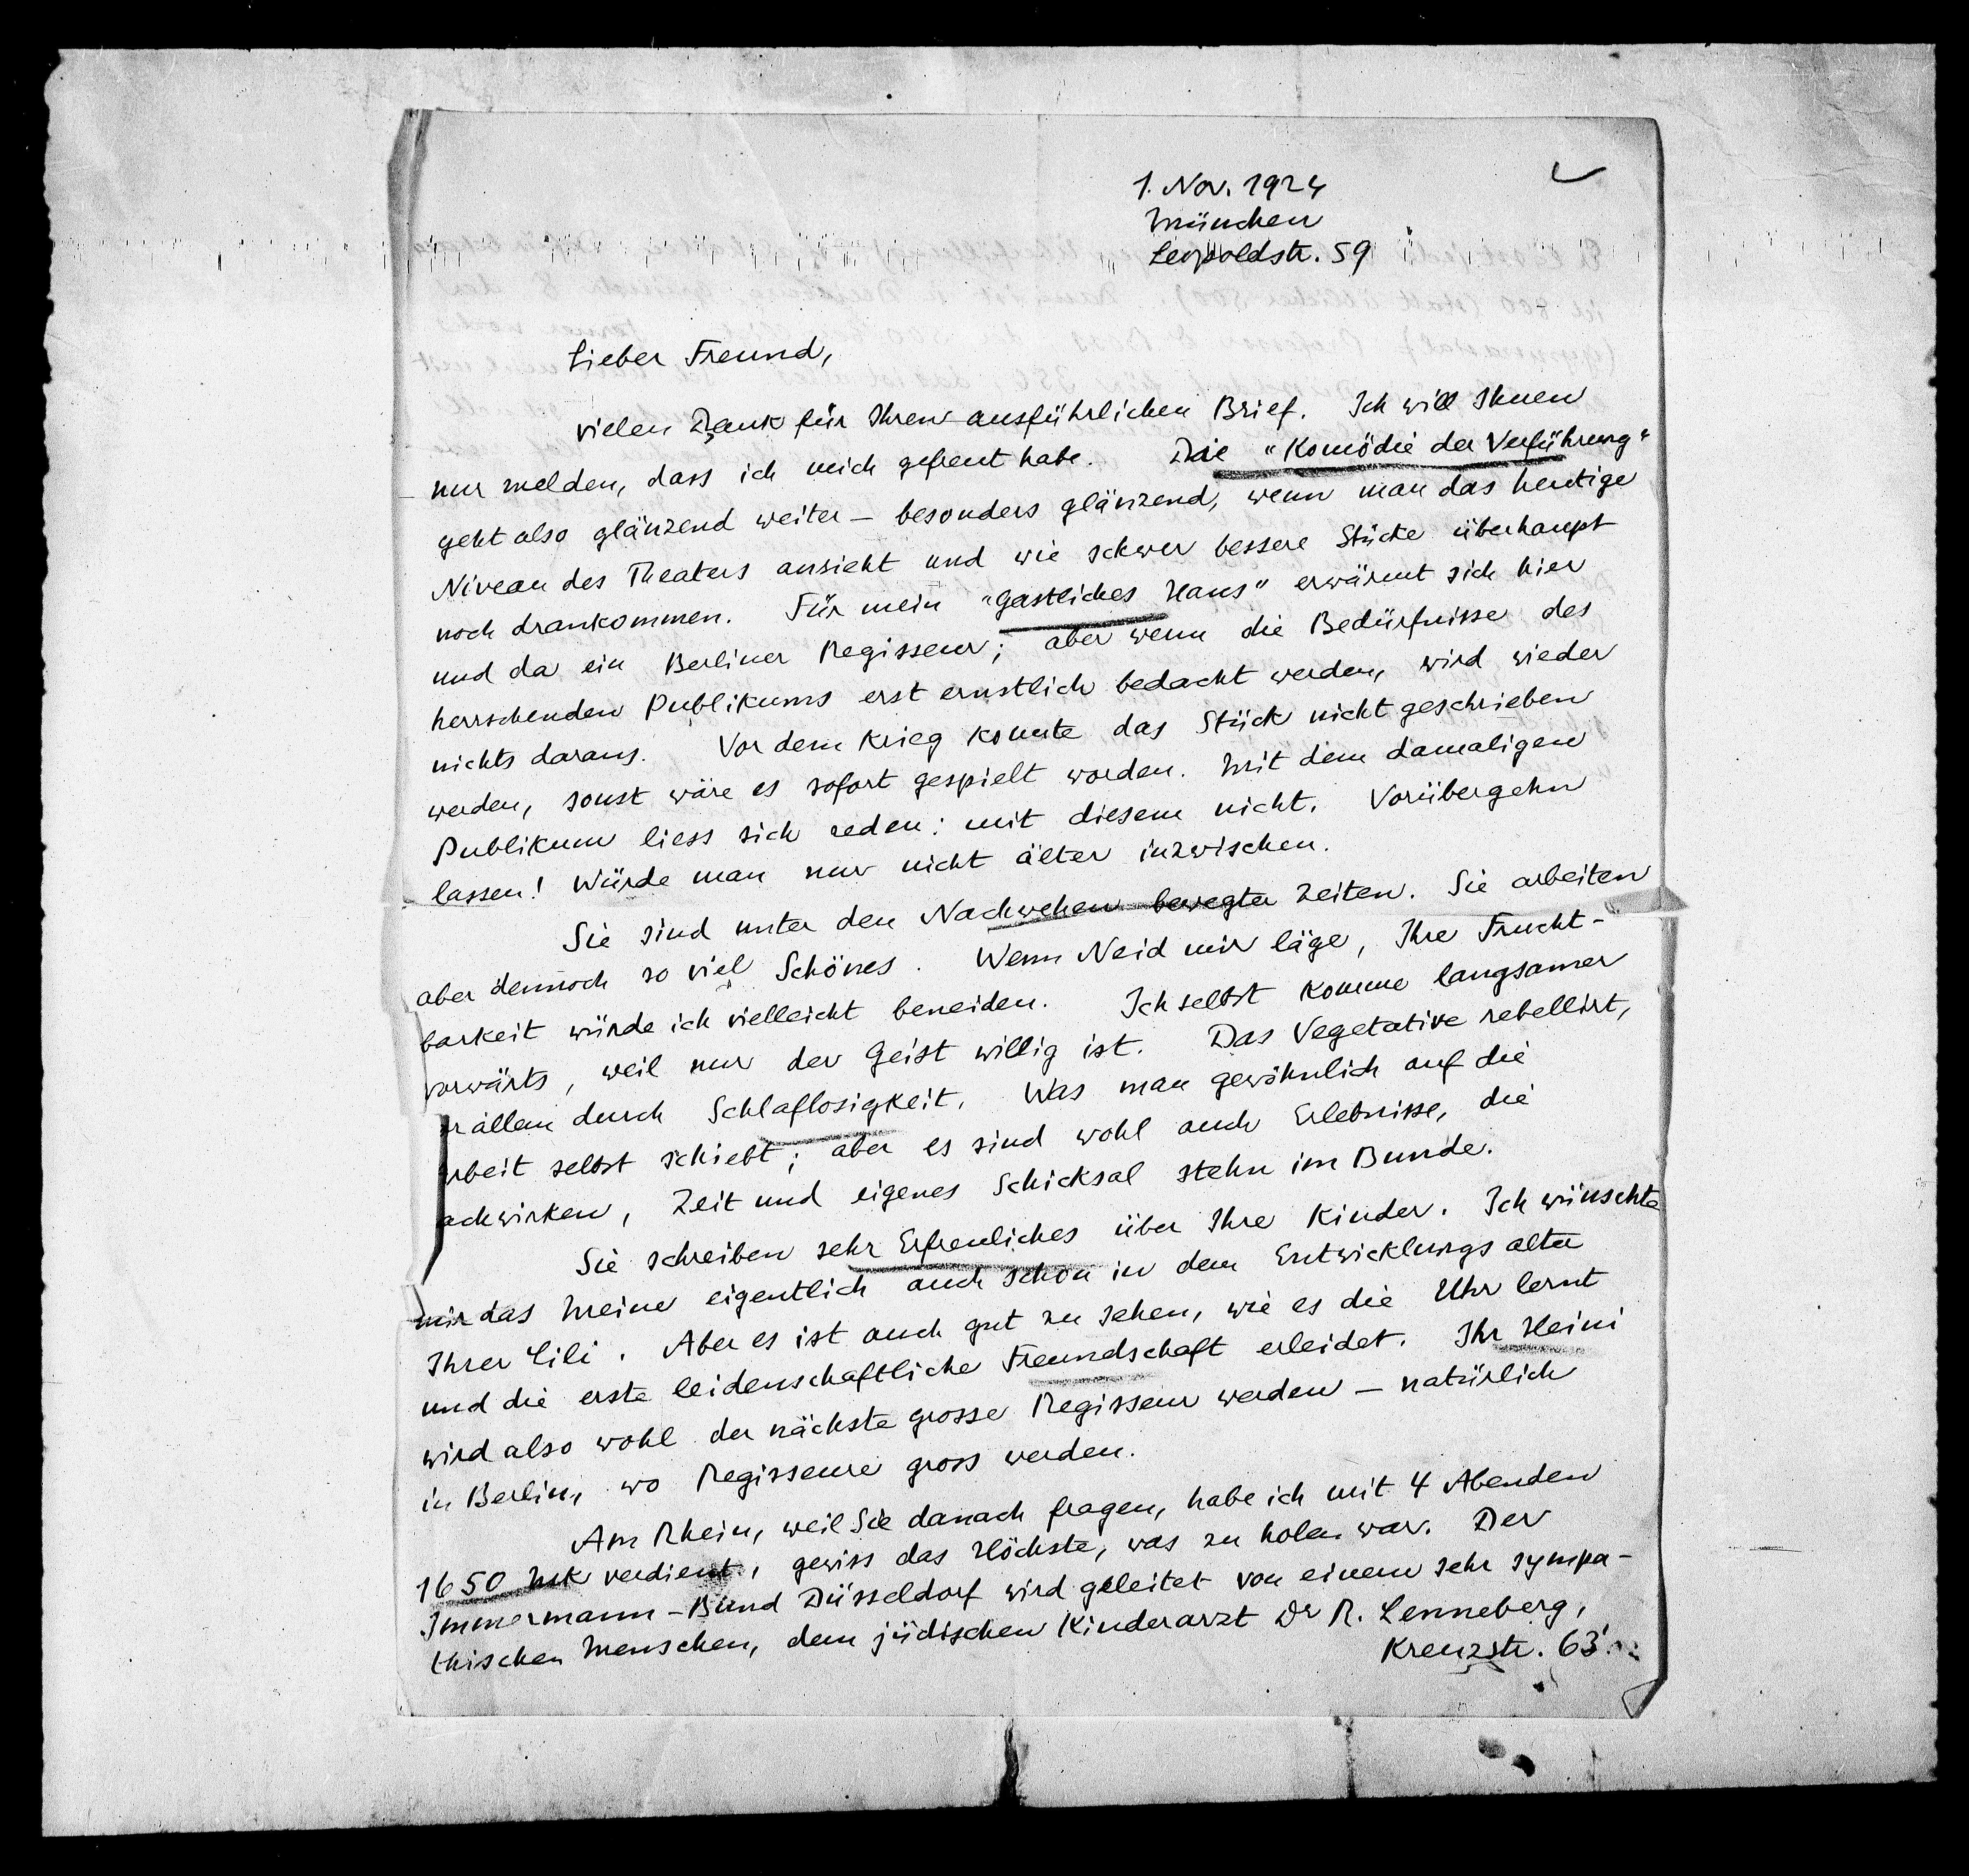 1. Nov. 1924
München
Leopoldstr. 59
Lieber Freund,
vielen Dank für Ihren ausführlichen Brief. Ich will Ihnen
nur melden, dass ich mich gefreut habe. Die "Komödie der Verführung"
geht also glänzend weiter – besonders glänzend, wenn man das heutige
Niveau des Theaters ansieht und wie schwer bessere Stücke überhaupt
noch drankommen. Für mein "gastliches Haus" erwärmt sich hier
und da ein Berliner Regisseur; aber wenn die Bedürfnisse des
herrschenden Publikums erst ernstlich bedacht werden, wird wieder
nichts daraus. Vor dem Krieg konnte das Stück nicht geschrieben
werden, sonst wäre es sofort gespielt worden. Mit dem damaligen
Publikum liess sich reden: mit diesem nicht. Vorübergehn
lassen! Würde man nur nicht älter inzwischen.
Sie sind unter den Nachwehen bewegter Zeiten. Sie arbeiten
aber dennoch so viel Schönes. Wenn Neid mir läge, Ihre Frucht-
barkeit würde ich vielleicht beneiden. Ich selbst komme langsamer
vorwärts, weil nur der Geist willig ist. Das Vegetative rebellirt,
r allem durch Schlaflosigkeit. Was man gewöhnlich auf die
rbeit selbst schiebt; aber es sind wohl auch Erlebnisse, die
achwirken, Zeit und eigenes Schicksal stehn im Bunde.
Sie schreiben sehr Erfreuliches über Ihre Kinder. Ich wünschte
mir das Meine eigentlich auch schon in dem Entwicklungsalter
Ihrer Lili. Aber es ist auch gut zu sehen, wie es die Uhr lernt
und die erste leidenschaftliche Freundschaft erleidet. Ihr Heini
wird also wohl der nächste grosse Regisseur werden – natürlich
in Berlin, wo Regisseure gross werden.
Am Rhein, weil Sie danach fragen, habe ich mit 4 Abenden
1650 Mk verdient, gewiss das Höchste, was zu holen war. Der
Immermann-Bund Düsseldorf wird geleitet von einem sehr sympa-
thischen Menschen, dem jüdischen Kinderarzt Dr R. Lenneberg,
Kreuzstr. 63.